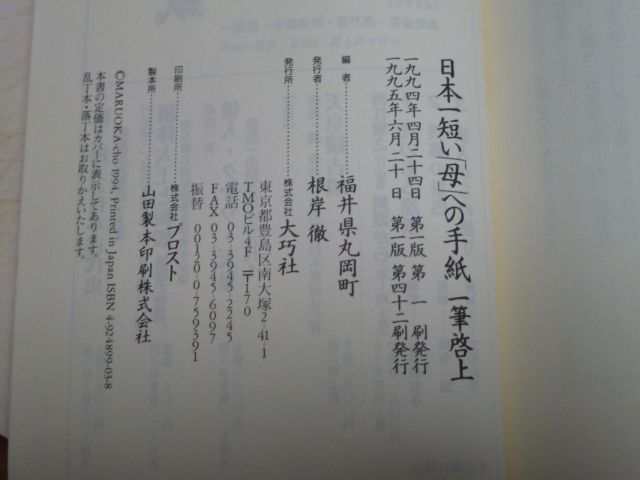 日本一短い「母」への手紙 一筆啓上
一九九四年四月二十四日 第一版 第一刷発行
一九九五年六月二十日 第一版 第四十二刷発行
編者………福井県丸岡町
発行者………根岸 徹
発行所………株式会社 大巧社
東京都豊島区南大塚2-41-1
TMOビル4F 〒170
電話 03-3945-2245
FAX 03-3945-6097
振替 00120-0-759391
印刷所………株式会社 プロスト
製本所………山田製本印刷株式会社
©MARUOKA-cho 1994, Printed in Japan ISBN 4-924899-03-8
本書の定価はカバーに表示してあります。
乱丁本・落丁本はお取りかえいたします。